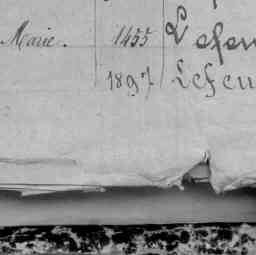 Marie. 1455 Lefeu
1897 Lefeu